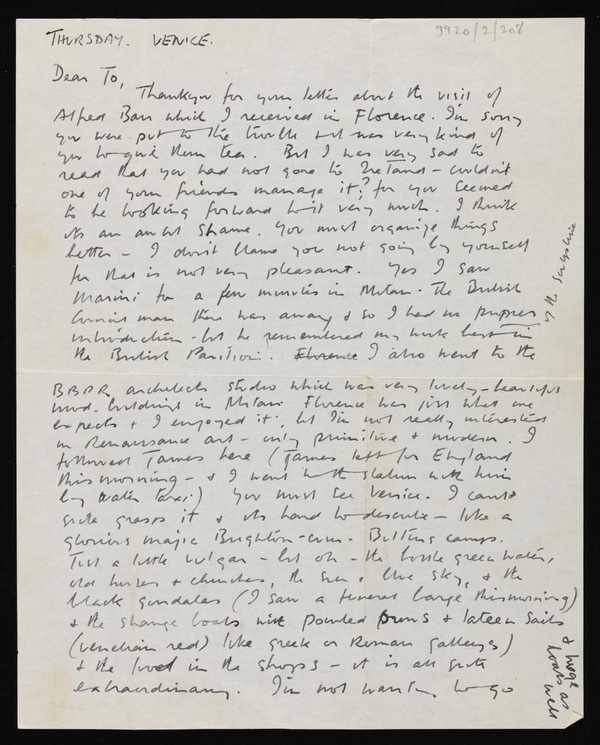 9920/2/208
THURSDAY. VENICE.
Dear To,
Thankyou for your letter about the visit of
Alfred Barr which I received in Florence. I'm sorry
you were put to the trouble but was very kind of
you to give them tea. But I was very sad to
read that you had not gone to Ireland - couldn't
one of your friends manage it? for you seemed
to be looking forward to it very much. I think
its an awful shame. You must organize things
better - I don't blame you not going by yourself
for that is not very pleasant. Yes I saw
Marini for a few minutes in Milan. The British
Council man there was away & so I had no proper
introduction - but he remembered my work here in
the British Pavilion. I also went to the
BBPR architects studio which was very lovely - beautiful
mod. buildings in Milan Florence was just what one
expects & I enjoyed it, but I'm not really interested
in Renaissance art - only primitive & modern. I
followed James here (James left for England
this morning - & I went to the station with him
by water taxi) You must see Venice. I can't
quite grasp it & its hard to describe - like a
glorious magic Brighton-cum-Butlins camps.
Just a little vulgar - but oh - the bottle green water,
old houses & churches, the sun & blue sky, & the
black gondolas (I saw a funeral barge this morning)
& the strange boats with pointed prows & lateen sails
(venetian red) like greek or Roman galleys)
& the food in the shops - it is all quite
extraordinary. I'm not wanting to go
of the
& huge
boats as
well